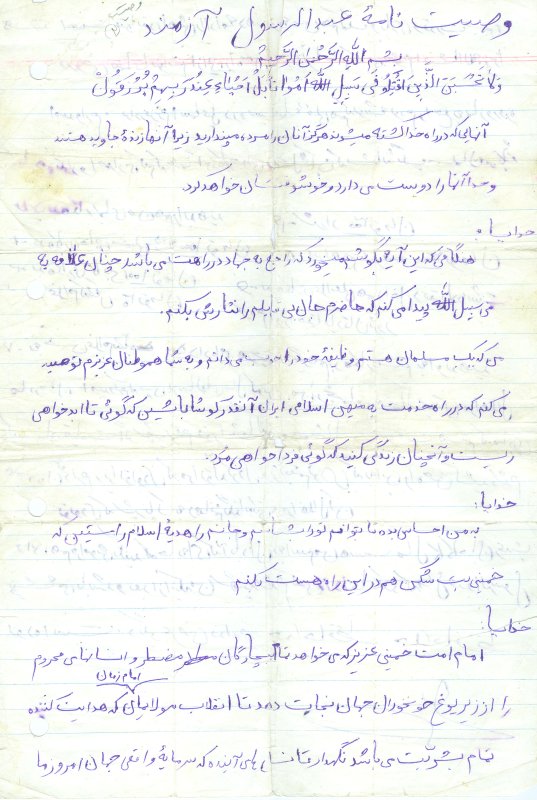 وصیت نامهٔ عبدالرسول آزمند
بِسْمِ اللهِ الرَّحْمٰنِ الرَّحیمْ
وَلا تَحْسَبَنَّ الَّذینَ قُتِلُو فی سَبیلِ اللهِ اَمْواتا بَلْ اَحْیاءُ عِنْدَ رَبِهِمْ یُرْزَقُونْ
آنهایی که در راه خدا کشته میشوند هرگز آنان را مرده مپندارید زیرا آنها زندهٔ جاوید هستند
وخدا آنها را دوست می دارد و خوشنودشان خواهد کرد.
خدایا:
هنگامی که این آیه بگوشم میخورد که راجع به جهاد در راهت می باشد چنان علاقه به
فی سبیل الله پیدا می کنم که حاضرم جان بی مایه ام را نثارش بکنم.
من که یک مسلمان هستم وظیفهٔ خود می دانم و به شما هموطنان عزیزم توصیه
می کنم که در راه خدمت به میهن اسلامی ایران آنقدر کوشا باشین که گوئی تا ابد خواهی
زیست و آنچنان زندگی کنید که گوئی فردا خواهی مرد.
خدایا:
به من احساس بده تا توانم تو را بشناسم و جانم را هدیهٔ اسلام راستینی که
خمینی بت شکن هم در این راه هست بکنم
خدایا:
امام امت خمینی عزیز که می خواهد تا بیچارگان مضطر و انسانهای محروم
را از زیر یوغ خونخواران جهان نجات دهد تا انقلاب مولایمان امام زمان که هدایت کننده
تمام بشریت می باشد نگهدار تا نسل های آینده که سرمایهٔ واقعی جهان امروز ما